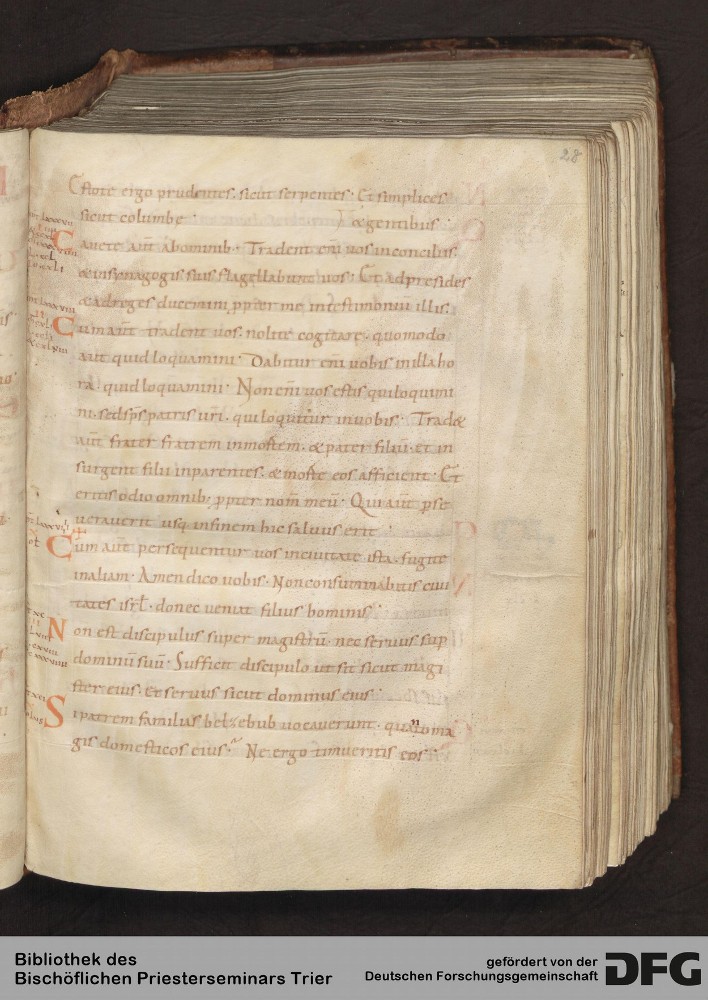 28
Estote ergo prudentes. sicut serpentes. Et simplices
sicut columbe. &gentibus.
Cauete aut ab ominib. Tradent eni uos inconciliis.
&insynagogis suis flagellabunt uos. Et adpresides
&adreges ducemini ppter me intestimoniu illis.
Cum aut tradent uos. nolite cogitare. quomodo
aut quid loquamini. Dabitur eni uobis inilla ho
ra. quid loquamini. Non eni uos estis qui loquimi
ni. sed sps patris uri. qui loquitur inuobis. Trad&
aut frater fratrem inmortem. &pater filiu. et in
surgent filii inparentes. &morte eos afficient. Et
eritis odio omnib; ppter nom meu. Qui aut pse
uerauerit usq infinem hic saluus erit.
Cum aut persequentur uos inciuitate ista. fugite
inaliam. Amen dico uobis. Non consummabitis ciui
tates isrl. donec ueniat filius hominis.
Non est discipulus super magistru. nec seruus sup
dominu suu. Sufficit discipulo ut sit sicut magi
ster eius. et seruus sicut dominus eius.
Si patrem familias belzebub uocauerunt. quanto ma
gis domesticos eius. Ne ergo timueritis eos.
Bibliothek des
Bischöflichen Priesterseminars Trier
gefördert von der
Deutschen Forschungsgemeinschaft
DFG